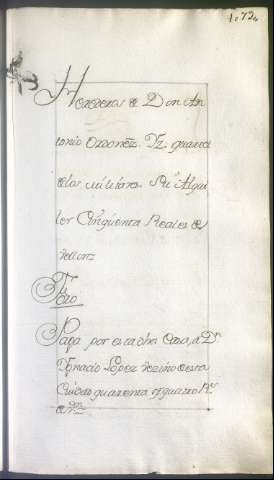 1.072
Herederos de Don An
tonio Ordoñez Vz.
de los militares Su Alqui
ler Cinquenta Reales de
Vellon
Foro
Paga por esta dha Casa, a Dn
Ygnacio Lopez Vezino de esta
Ciudad quarenta y quatro Rs
de Vn